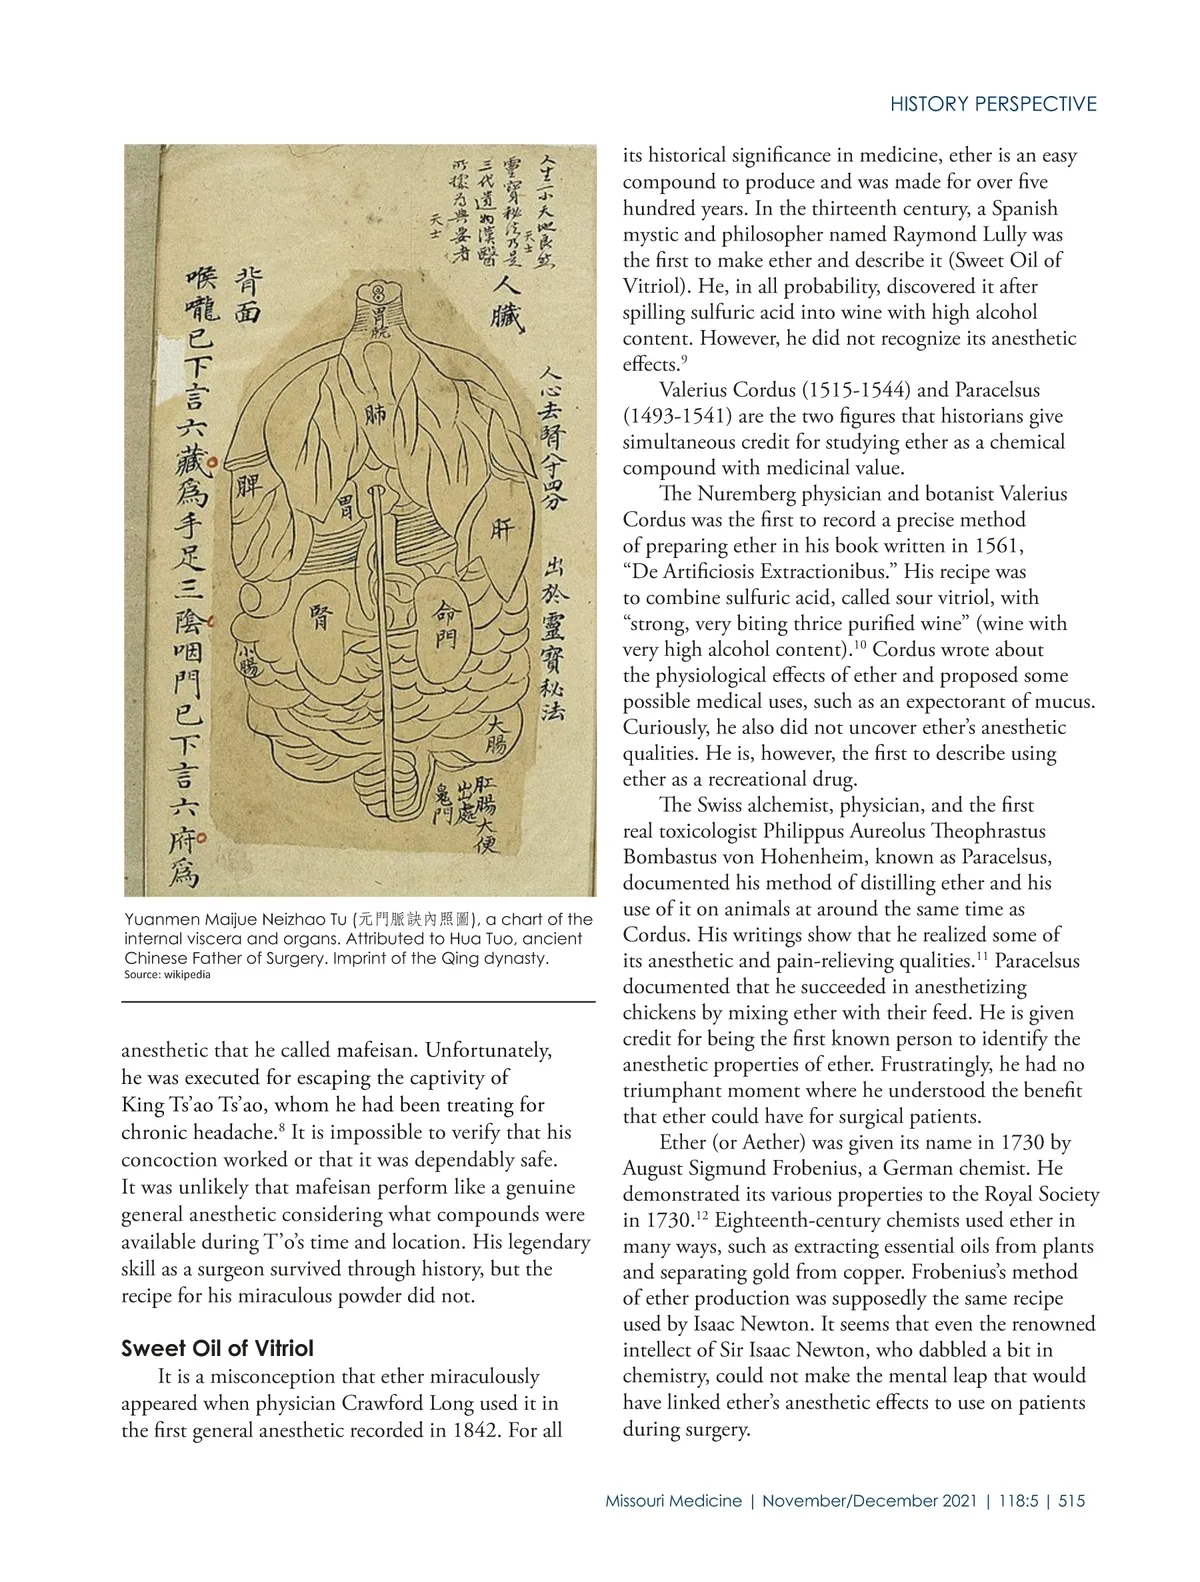 HISTORY PERSPECTIVE
人身一小天地良然
天士
靈寶秘法乃是
三代遺物漢醫
所據為典要者
天士
人臟
人心去腎八寸四分
出於靈寶秘法
背面
喉嚨已下言六藏為手足三陰咽門已下言六府為
胃脘
肺
脾
胃
肝
腎
命門
小腸
大腸
肛腸大便
出處
鬼門
Yuanmen Maijue Neizhao Tu (元門脈訣內照圖), a chart of the
internal viscera and organs. Attributed to Hua Tuo, ancient
Chinese Father of Surgery. Imprint of the Qing dynasty.
Source: wikipedia
anesthetic that he called mafeisan. Unfortunately,
he was executed for escaping the captivity of
King Ts’ao Ts’ao, whom he had been treating for
chronic headache.8 It is impossible to verify that his
concoction worked or that it was dependably safe.
It was unlikely that mafeisan perform like a genuine
general anesthetic considering what compounds were
available during T’o’s time and location. His legendary
skill as a surgeon survived through history, but the
recipe for his miraculous powder did not.
Sweet Oil of Vitriol
It is a misconception that ether miraculously
appeared when physician Crawford Long used it in
the first general anesthetic recorded in 1842. For all
its historical significance in medicine, ether is an easy
compound to produce and was made for over five
hundred years. In the thirteenth century, a Spanish
mystic and philosopher named Raymond Lully was
the first to make ether and describe it (Sweet Oil of
Vitriol). He, in all probability, discovered it after
spilling sulfuric acid into wine with high alcohol
content. However, he did not recognize its anesthetic
effects.9
Valerius Cordus (1515-1544) and Paracelsus
(1493-1541) are the two figures that historians give
simultaneous credit for studying ether as a chemical
compound with medicinal value.
The Nuremberg physician and botanist Valerius
Cordus was the first to record a precise method
of preparing ether in his book written in 1561,
“De Artificiosis Extractionibus.” His recipe was
to combine sulfuric acid, called sour vitriol, with
“strong, very biting thrice purified wine” (wine with
very high alcohol content).10 Cordus wrote about
the physiological effects of ether and proposed some
possible medical uses, such as an expectorant of mucus.
Curiously, he also did not uncover ether’s anesthetic
qualities. He is, however, the first to describe using
ether as a recreational drug.
The Swiss alchemist, physician, and the first
real toxicologist Philippus Aureolus Theophrastus
Bombastus von Hohenheim, known as Paracelsus,
documented his method of distilling ether and his
use of it on animals at around the same time as
Cordus. His writings show that he realized some of
its anesthetic and pain-relieving qualities.11 Paracelsus
documented that he succeeded in anesthetizing
chickens by mixing ether with their feed. He is given
credit for being the first known person to identify the
anesthetic properties of ether. Frustratingly, he had no
triumphant moment where he understood the benefit
that ether could have for surgical patients.
Ether (or Aether) was given its name in 1730 by
August Sigmund Frobenius, a German chemist. He
demonstrated its various properties to the Royal Society
in 1730.12 Eighteenth-century chemists used ether in
many ways, such as extracting essential oils from plants
and separating gold from copper. Frobenius’s method
of ether production was supposedly the same recipe
used by Isaac Newton. It seems that even the renowned
intellect of Sir Isaac Newton, who dabbled a bit in
chemistry, could not make the mental leap that would
have linked ether’s anesthetic effects to use on patients
during surgery.
Missouri Medicine | November/December 2021 | 118:5 | 515